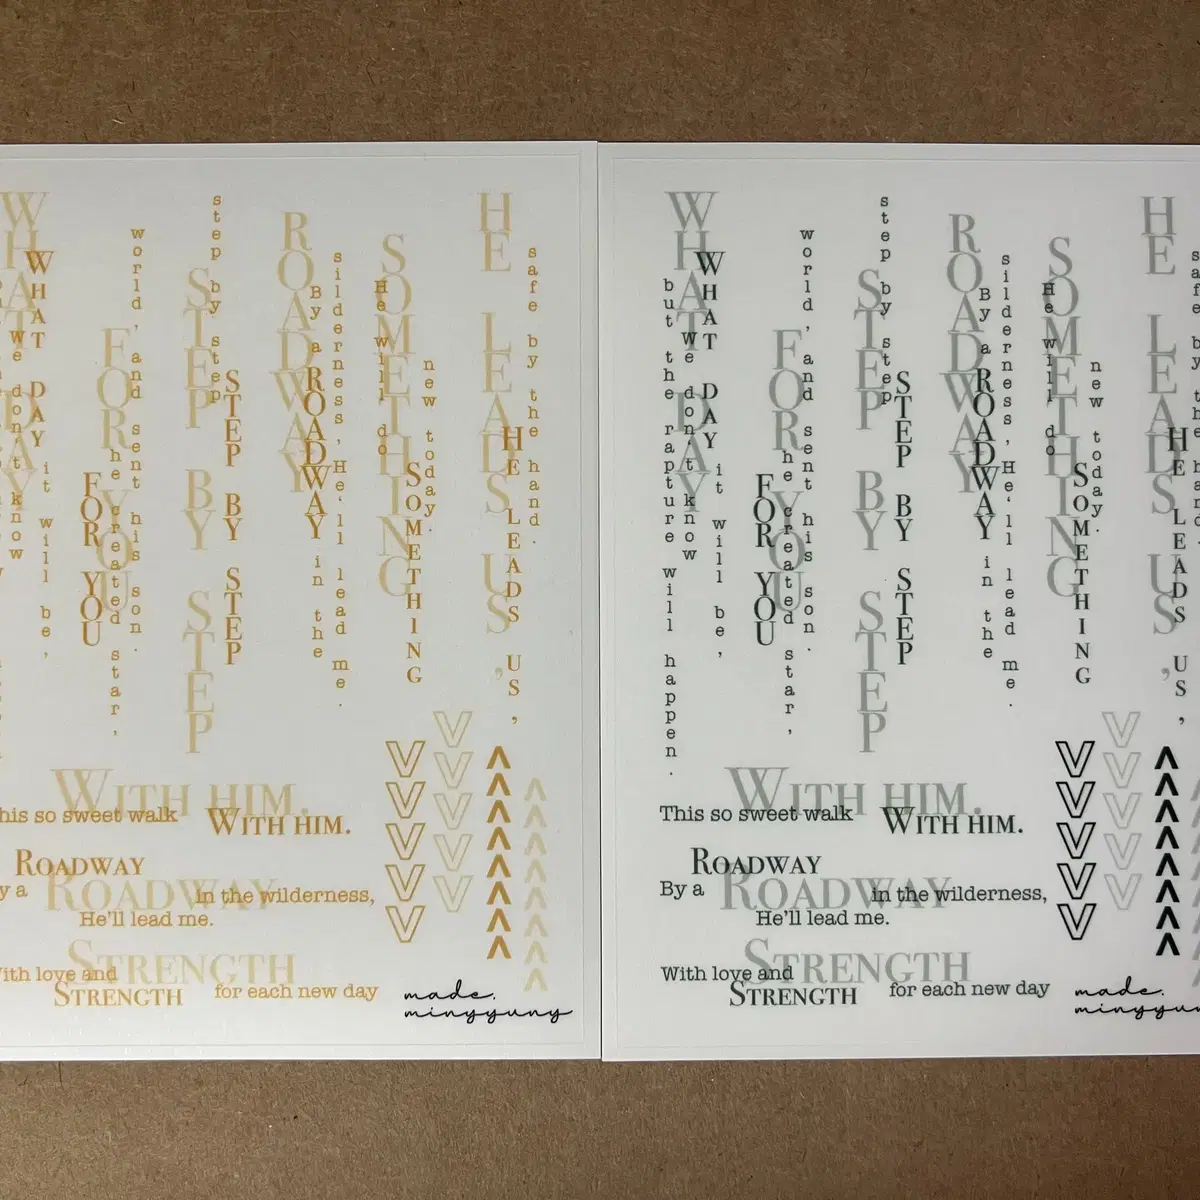 WHAT DAY
WHAT DAY
we don't know
it will be,
FOR YOU
FOR YOU
he created star,
world, and sent his son.
STEP BY STEP
step by step
STEP BY STEP
ROADWAY
By a ROADWAY in the
silderness, He'll lead me.
SOMETHING
He will do
SOMETHING
new today.
HE LEADS US,
HE LEADS US,
safe by the hand.
WITH HIM.
his so sweet walk WITH HIM.
ROADWAY
y a ROADWAY in the wilderness,
He'll lead me.
STRENGTH
ith love and STRENGTH for each new day
VVVVV
VVVVV
ΛΛΛΛΛΛΛ
ΛΛΛΛΛΛΛ
made.
mingyyuny
but the rapture will happen.
WHAT DAY
WHAT DAY
we don't know
it will be,
FOR YOU
FOR YOU
he created star,
world, and sent his son.
STEP BY STEP
step by step
STEP BY STEP
ROADWAY
By a ROADWAY in the
silderness, He'll lead me.
SOMETHING
He will do
SOMETHING
new today.
HE LEADS US,
HE LEADS US,
safe by the hand
WITH HIM.
This so sweet walk WITH HIM.
ROADWAY
By a ROADWAY in the wilderness,
He'll lead me.
STRENGTH
With love and STRENGTH for each new day
VVVVV
VVVVV
ΛΛΛΛΛΛΛ
made.
mingyyun